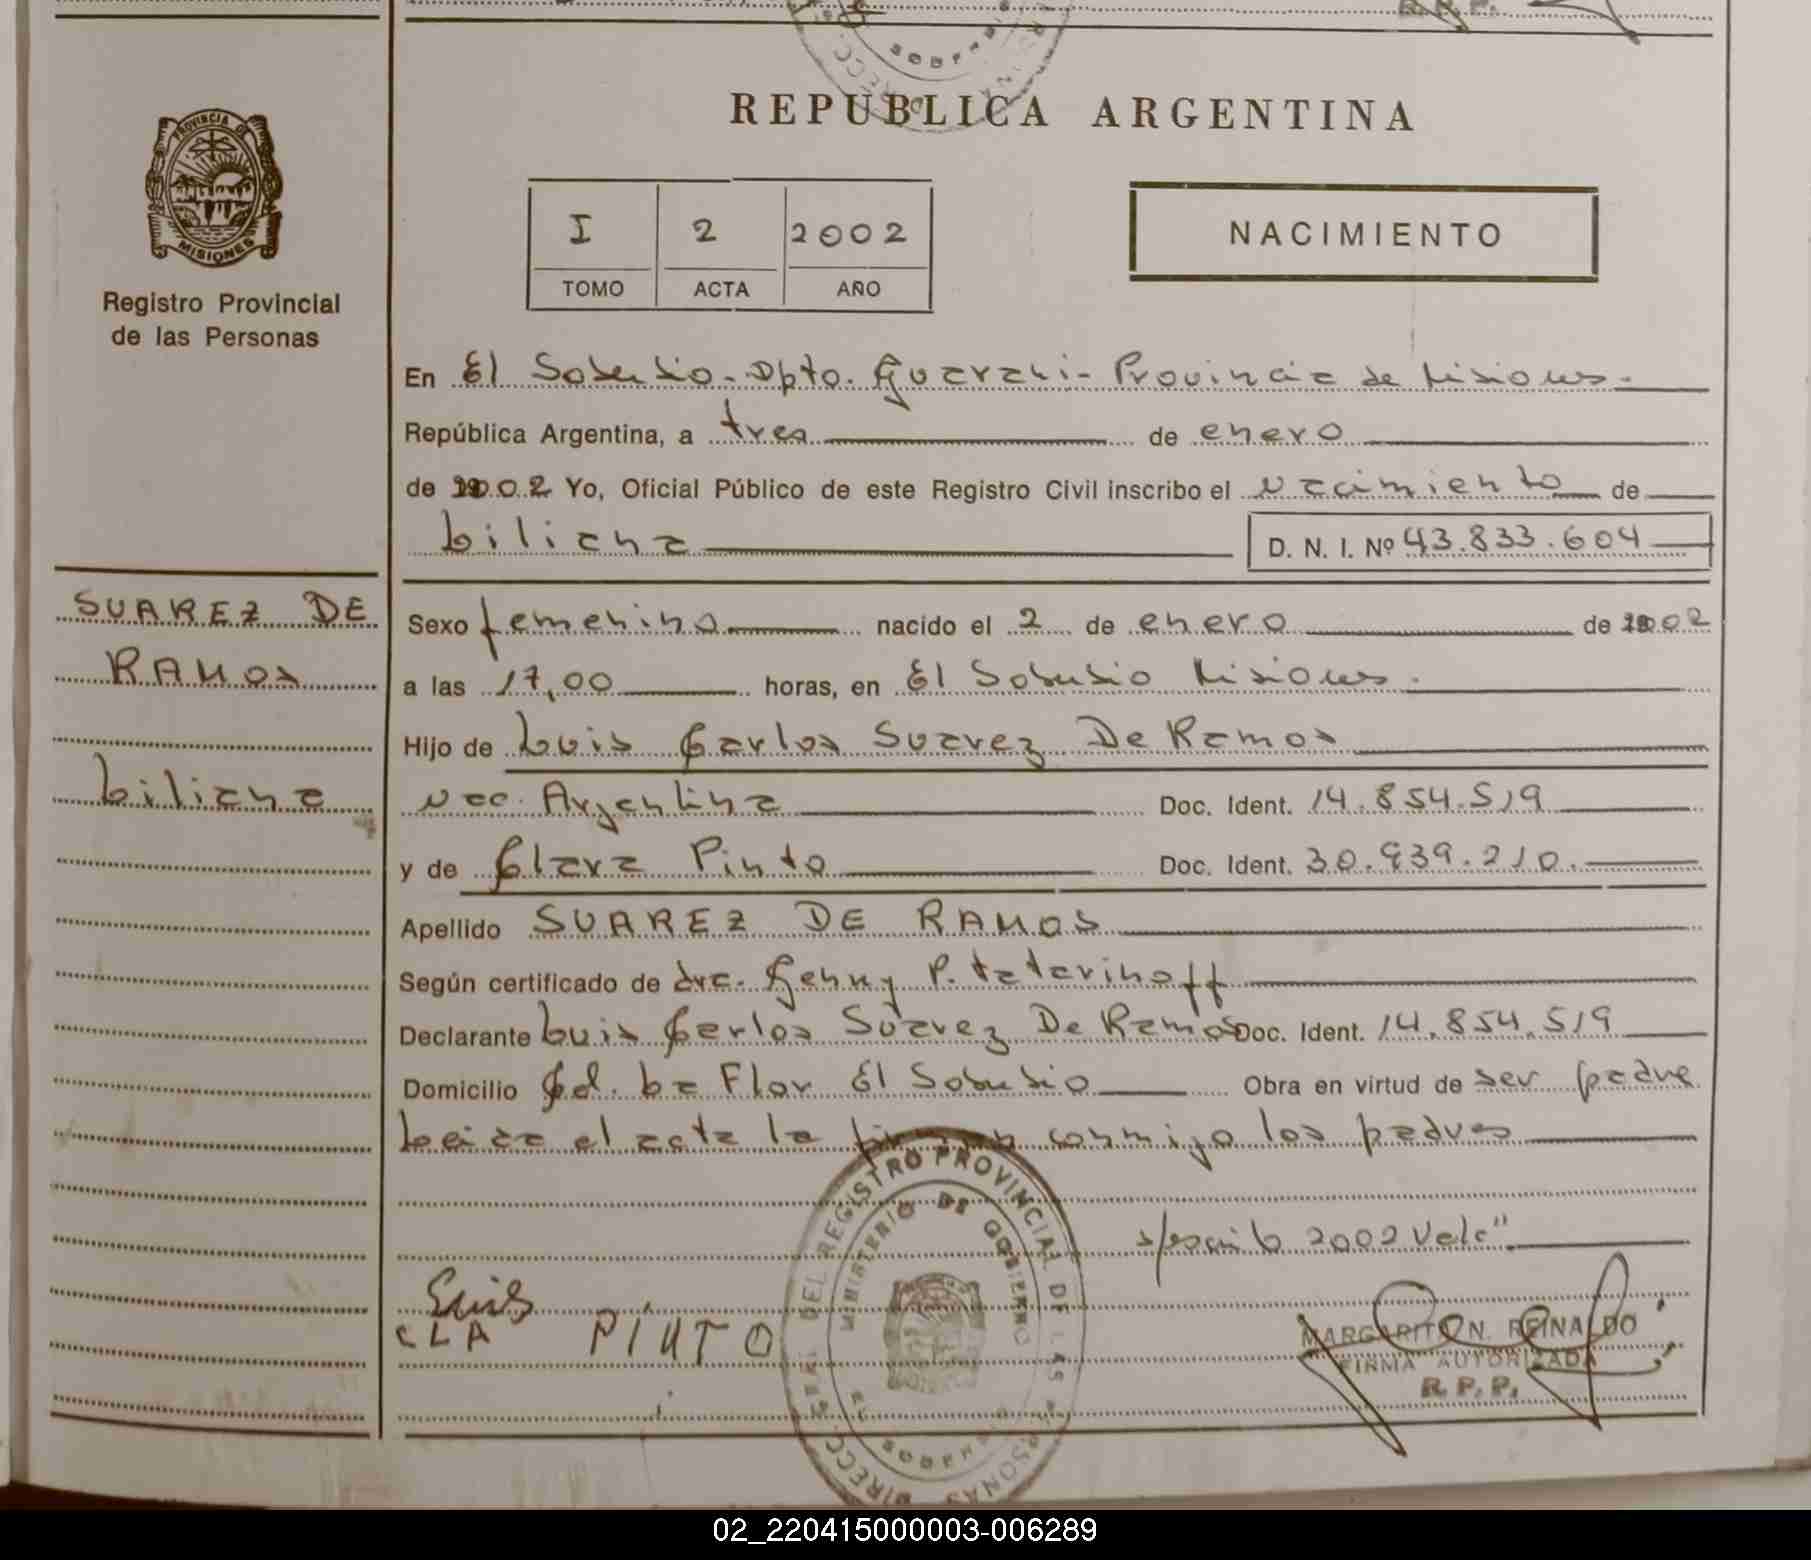 REPUBLICA ARGENTINA
PROVINCIA DE
MISIONES
Registro Provincial
de las Personas
I 2 2002
TOMO ACTA AÑO
NACIMIENTO
En El Soberbio - Dpto. Guarani - Provincia de Misiones.
República Argentina, a tres de enero
de 2002 Yo, Oficial Público de este Registro Civil inscribo el nacimiento de
Liliana D. N. I. Nº 43.833.604
SUAREZ DE
RAMOS
Liliana
Sexo femenino nacido el 2 de enero de 2002
a las 17,00 horas, en El Soberbio Misiones.
Hijo de Luis Carlos Suarez De Ramos
nac. Argentina Doc. Ident. 14.854.519
y de Clara Pinto Doc. Ident. 30.939.210.
Apellido SUAREZ DE RAMOS
Según certificado de dra. Genny P. tatarinoff
Declarante Luis Carlos Suarez De Ramos Doc. Ident. 14.854.519
Domicilio Col. La Flor El Soberbio Obra en virtud de ser padre
Leida el acta la firman conmigo los padres
s/escrib 2002 Vale"
Luis
CLA PINTO
DIRECC. GRAL. DEL REGISTRO PROVINCIAL DE LAS PERSONAS
MINISTERIO DE GOBIERNO
EL SOBERBIO
MARGARITO N. REINALDO
FIRMA AUTORIZADA
R. P. P.
02_220415000003-006289